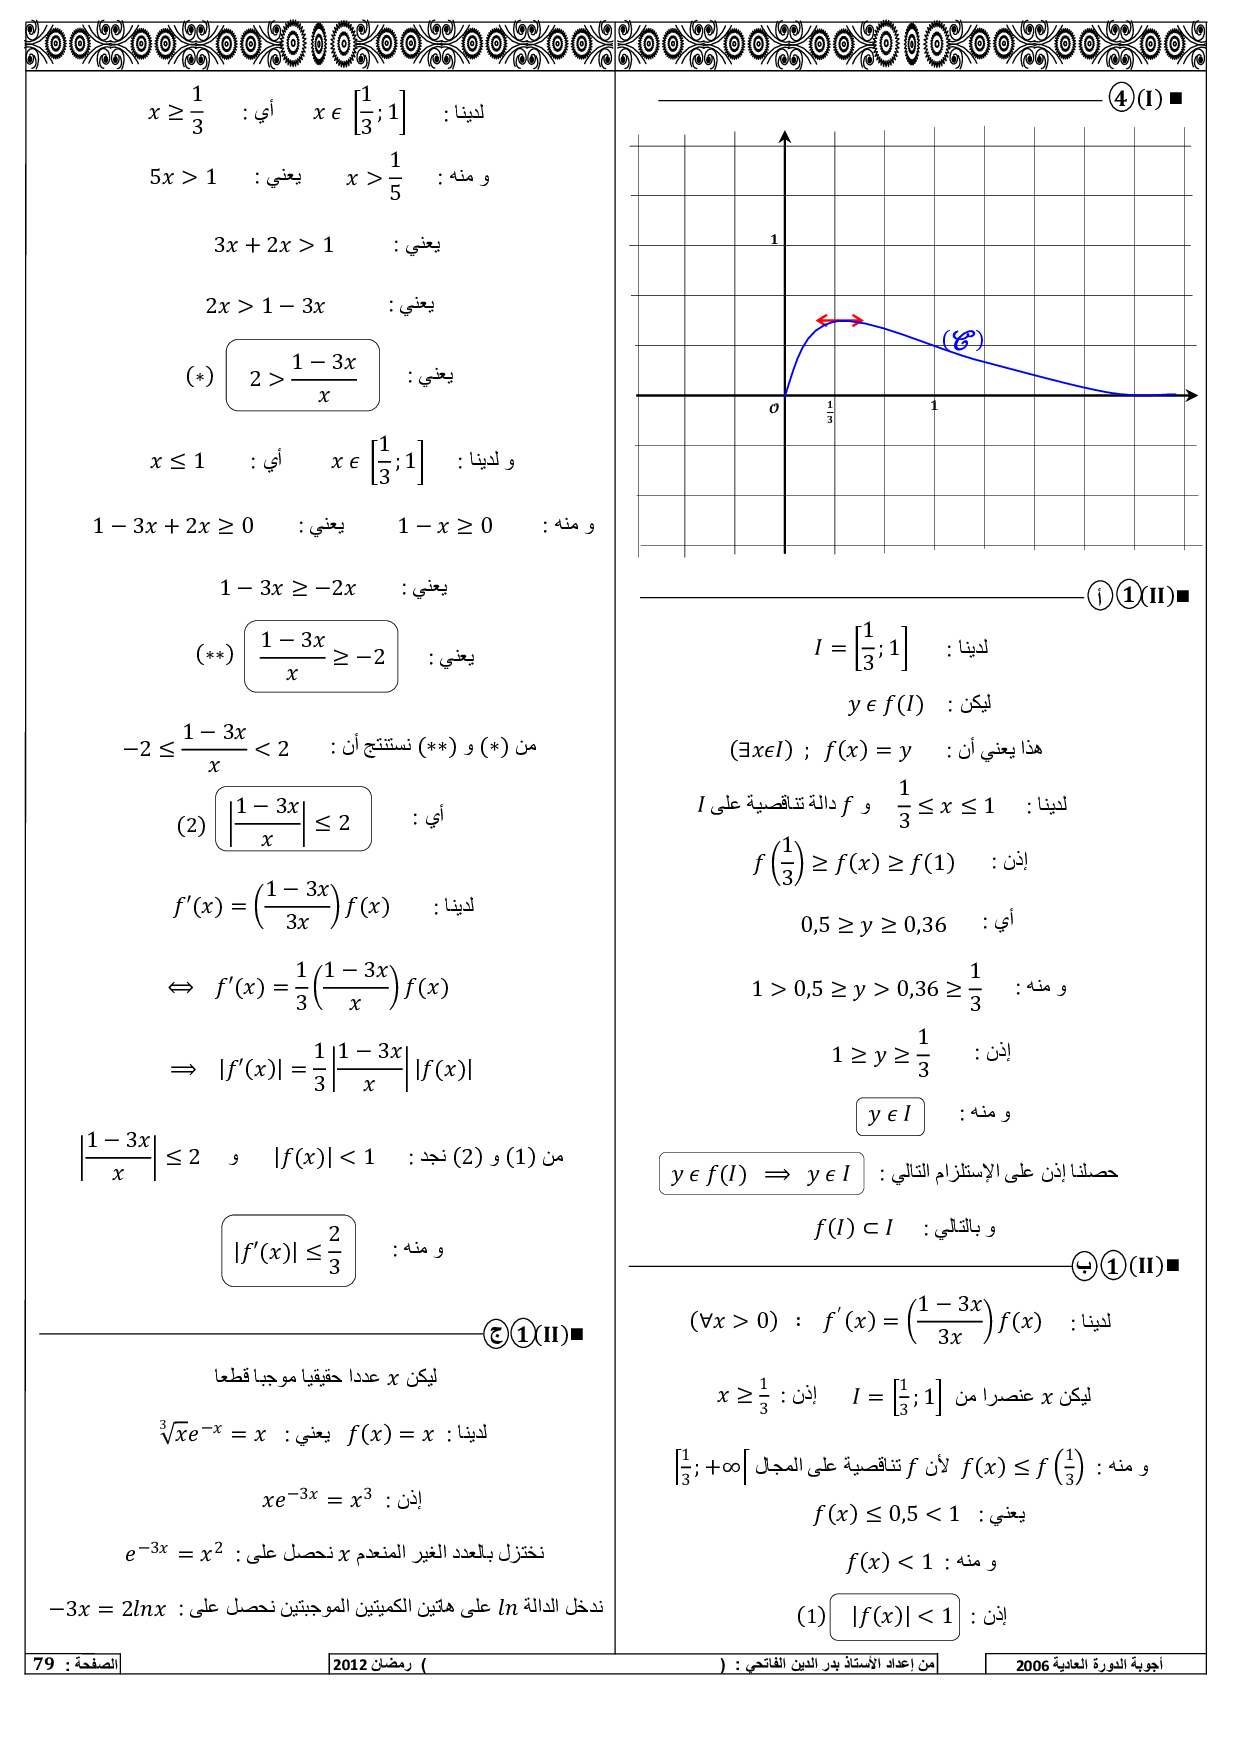 ■ (I) ④
1
(𝒞)
O 1/3 1
■ (II) ① أ
لدينا : I = [1/3 ; 1]
ليكن : y ϵ f(I)
هذا يعني أن : (∃xϵI) ; f(x) = y
لدينا : 1/3 ≤ x ≤ 1 و f دالة تناقصية على I
إذن : f(1/3) ≥ f(x) ≥ f(1)
أي : 0,5 ≥ y ≥ 0,36
و منه : 1 > 0,5 ≥ y > 0,36 ≥ 1/3
إذن : 1 ≥ y ≥ 1/3
و منه : y ϵ I
حصلنا إذن على الإستلزام التالي : y ϵ f(I) ⟹ y ϵ I
و بالتالي : f(I) ⊂ I
■ (II) ① ب
لدينا : (∀x > 0) : f′(x) = ((1 − 3x)/3x) f(x)
ليكن x عنصرا من I = [1/3 ; 1] إذن : x ≥ 1/3
و منه : f(x) ≤ f(1/3) لأن f تناقصية على المجال [1/3 ; +∞[
يعني : f(x) ≤ 0,5 < 1
و منه : f(x) < 1
إذن : |f(x)| < 1 (1)
لدينا : x ϵ [1/3 ; 1] أي : x ≥ 1/3
و منه : x > 1/5 يعني : 5x > 1
يعني : 3x + 2x > 1
يعني : 2x > 1 − 3x
يعني : 2 > (1 − 3x)/x (∗)
و لدينا : x ϵ [1/3 ; 1] أي : x ≤ 1
و منه : 1 − x ≥ 0 يعني : 1 − 3x + 2x ≥ 0
يعني : 1 − 3x ≥ −2x
يعني : (1 − 3x)/x ≥ −2 (∗∗)
من (∗) و (∗∗) نستنتج أن : −2 ≤ (1 − 3x)/x < 2
أي : |(1 − 3x)/x| ≤ 2 (2)
لدينا : f′(x) = ((1 − 3x)/3x) f(x)
⟺ f′(x) = 1/3 ((1 − 3x)/x) f(x)
⟹ |f′(x)| = 1/3 |(1 − 3x)/x| |f(x)|
من (1) و (2) نجد : |f(x)| < 1 و |(1 − 3x)/x| ≤ 2
و منه : |f′(x)| ≤ 2/3
■ (II) ① ج
ليكن x عددا حقيقيا موجبا قطعا
لدينا : f(x) = x يعني : ∛x e⁻ˣ = x
إذن : xe⁻³ˣ = x³
نختزل بالعدد الغير المنعدم x نحصل على : e⁻³ˣ = x²
ندخل الدالة ln على هاتين الكميتين الموجبتين نحصل على : −3x = 2lnx
أجوبة الدورة العادية 2006 من إعداد الأستاذ بدر الدين الفاتحي : ( ) رمضان 2012 الصفحة : 79